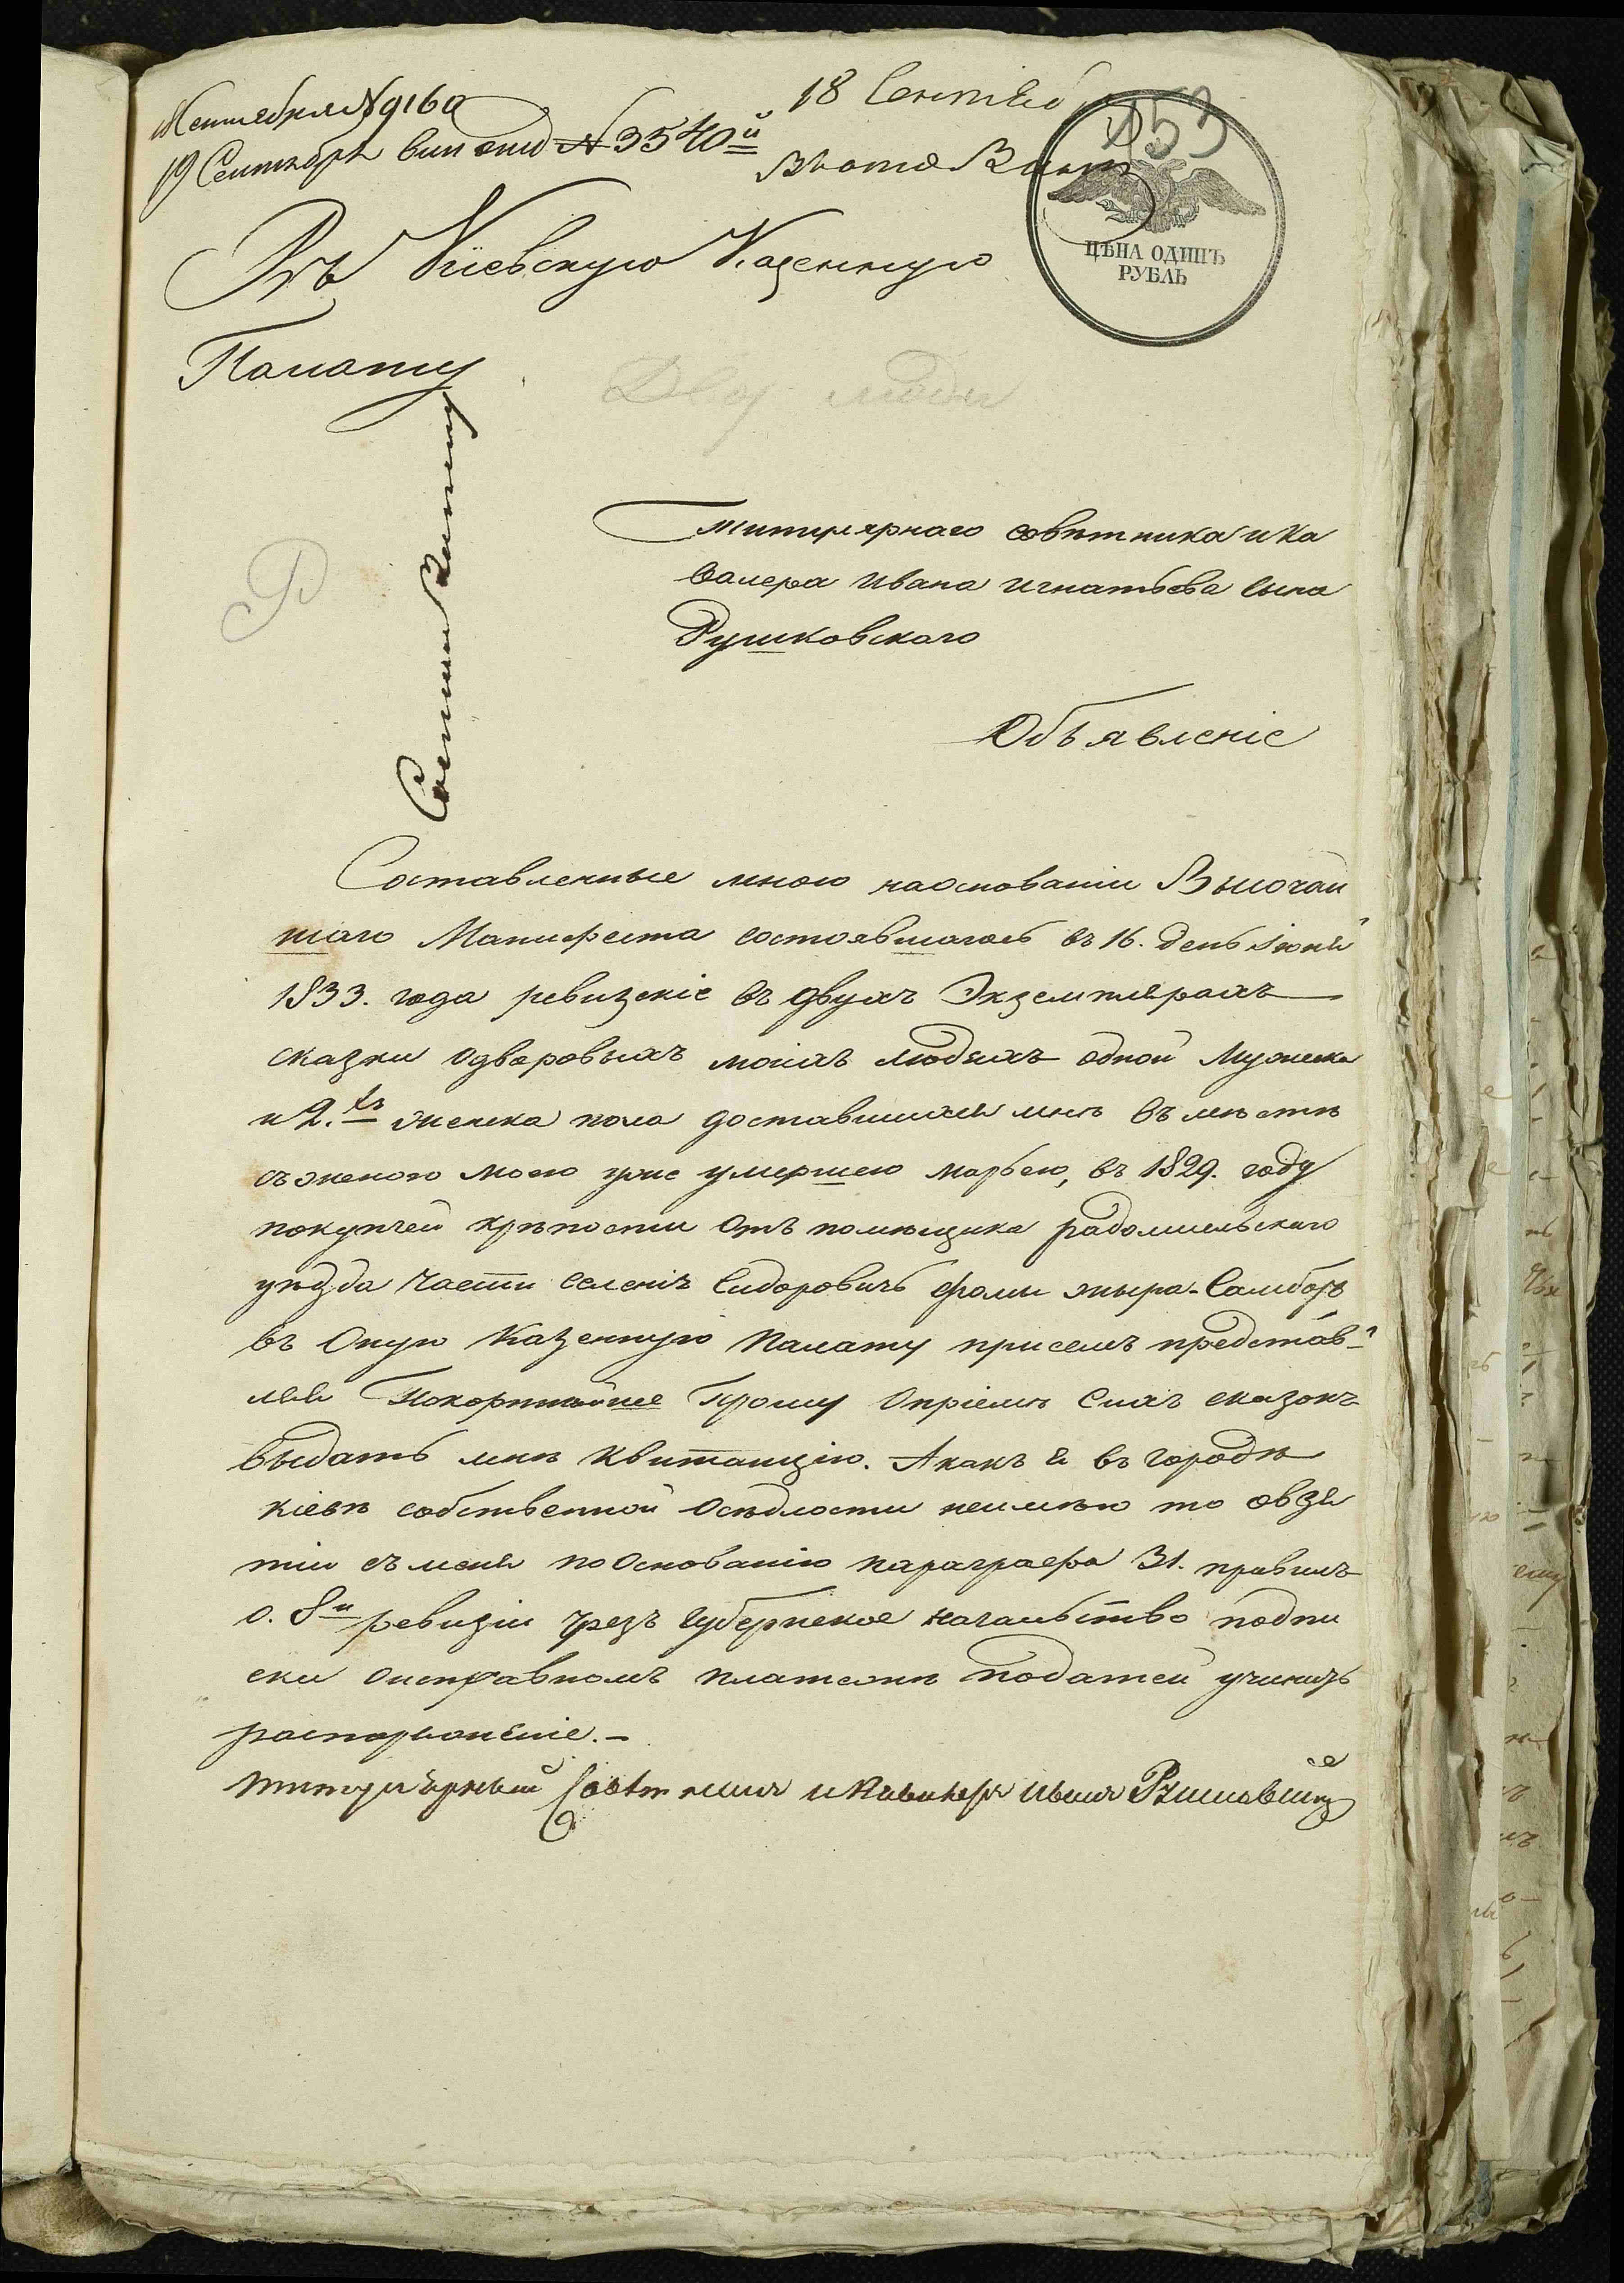 Сентября №9160
18 Сентяб
153
19 Сентября №3540й
ЦѢНА ОДИНЪ
РУБЛЬ
Въ Кіевскую Казенную
Палату
Двор люди
Титулярнаго совѣтника и Ка
валера Ивана Игнатьева сына
Рушковскаго
Объявленіе
Составленные мною наоснованіи Высочай
шаго Манифеста состоявшагось въ 16. день Іюня
1833. года ревизскіе въ двухъ Экземплярахъ
сказки одворовыхъ моихъ людяхъ одной Мужеска
и 2.хъ женска пола доставшихся мнѣ въ мѣстѣ
съ женою моею уже умершею марьею, въ 1829. году
покупчей крѣпости отъ помѣщика радомысльскаго
уѣзда части селенія Сидоровичь фомы
въ Оную Казенную Палату присемъ представ-
ляя Покорнѣйше Прошу Опріемѣ Сихъ сказокъ
выдать мнѣ Квитанцію. А какъ я въ городѣ
кіевѣ собственной Осѣдлости неимѣю то овзя
тіи съ меня по Основанію параграфа 31. правилъ
о. 8й ревизіи чрезъ губернское начальство подпи
ски Оисправномъ платежѣ податей учинить
распоряженіе.-
титулярный Совѣтникъ и Кавалеръ Иванъ Рушковскій